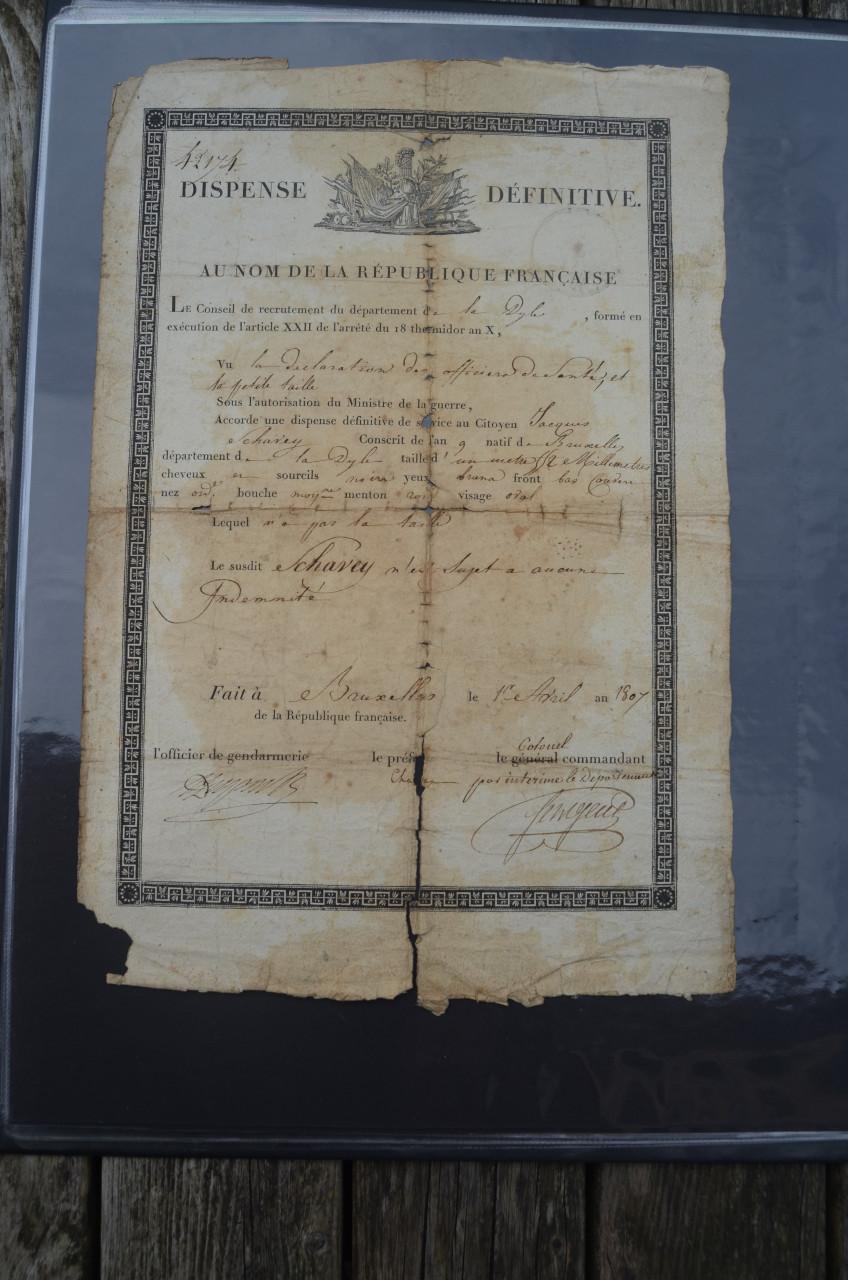 42174
DISPENSE DÉFINITIVE.
AU NOM DE LA RÉPUBLIQUE FRANÇAISE
LE Conseil de recrutement du département de la Dyle, formé en
exécution de l'article XXII de l'arrêté du 18 thermidor an X,
Vu la declaration des officiers de Santé, et
la petite taille
Sous l'autorisation du Ministre de la guerre,
Accorde une dispense définitive de service au Citoyen Jacques
Schavey Conscrit de l'an 9 natif de Bruxelles
département de la Dyle taille d'un metre Millemetres
cheveux et sourcils noirs yeux bruns front bas
nez ord.re bouche moyne menton rond visage oval
Lequel n'a pas la taille
Le susdit Schavey n'est Sujet a aucune
Indemnité
Fait à Bruxelles le 1er Avril an 1807
de la République française.
Colonel
l'officier de gendarmerie le préfet le général commandant
par interime le Departement